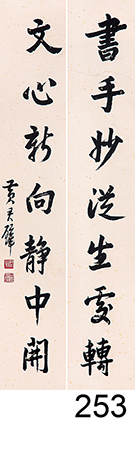 書手妙從生處轉
文心新向靜中開
黃君璧
253